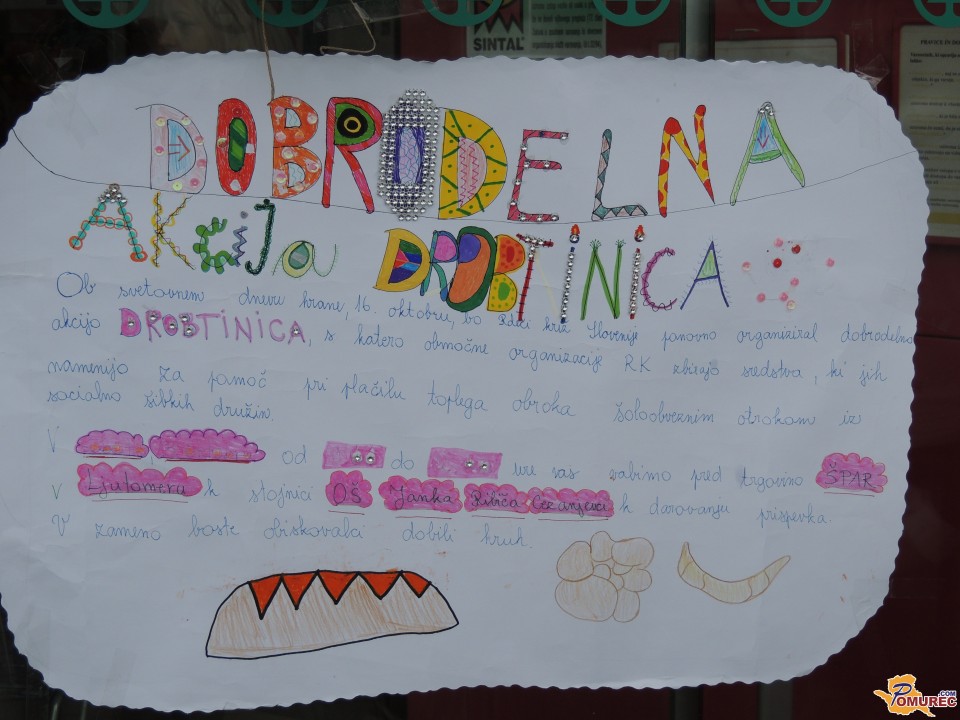 SINTAL
DOBRODELNA
AKCIJA DROBTINICA
Ob svetovnem dnevu hrane, 16. oktobru, bo Rdeči križ Slovenije ponovno organiziral dobrodelno
akcijo DROBTINICA, s katero območne organizacije RK zbirajo sredstva, ki jih
namenijo za pomoč pri plačilu toplega obroka šoloobveznim otrokom iz
socialno šibkih družin.
V od do ure vas vabimo pred trgovino ŠPAR
v Ljutomeru k stojnici OŠ Janka Ribiča Cezanjevci k darovanju prispevka.
V zameno boste obiskovalci dobili kruh.
POMUREC.COM